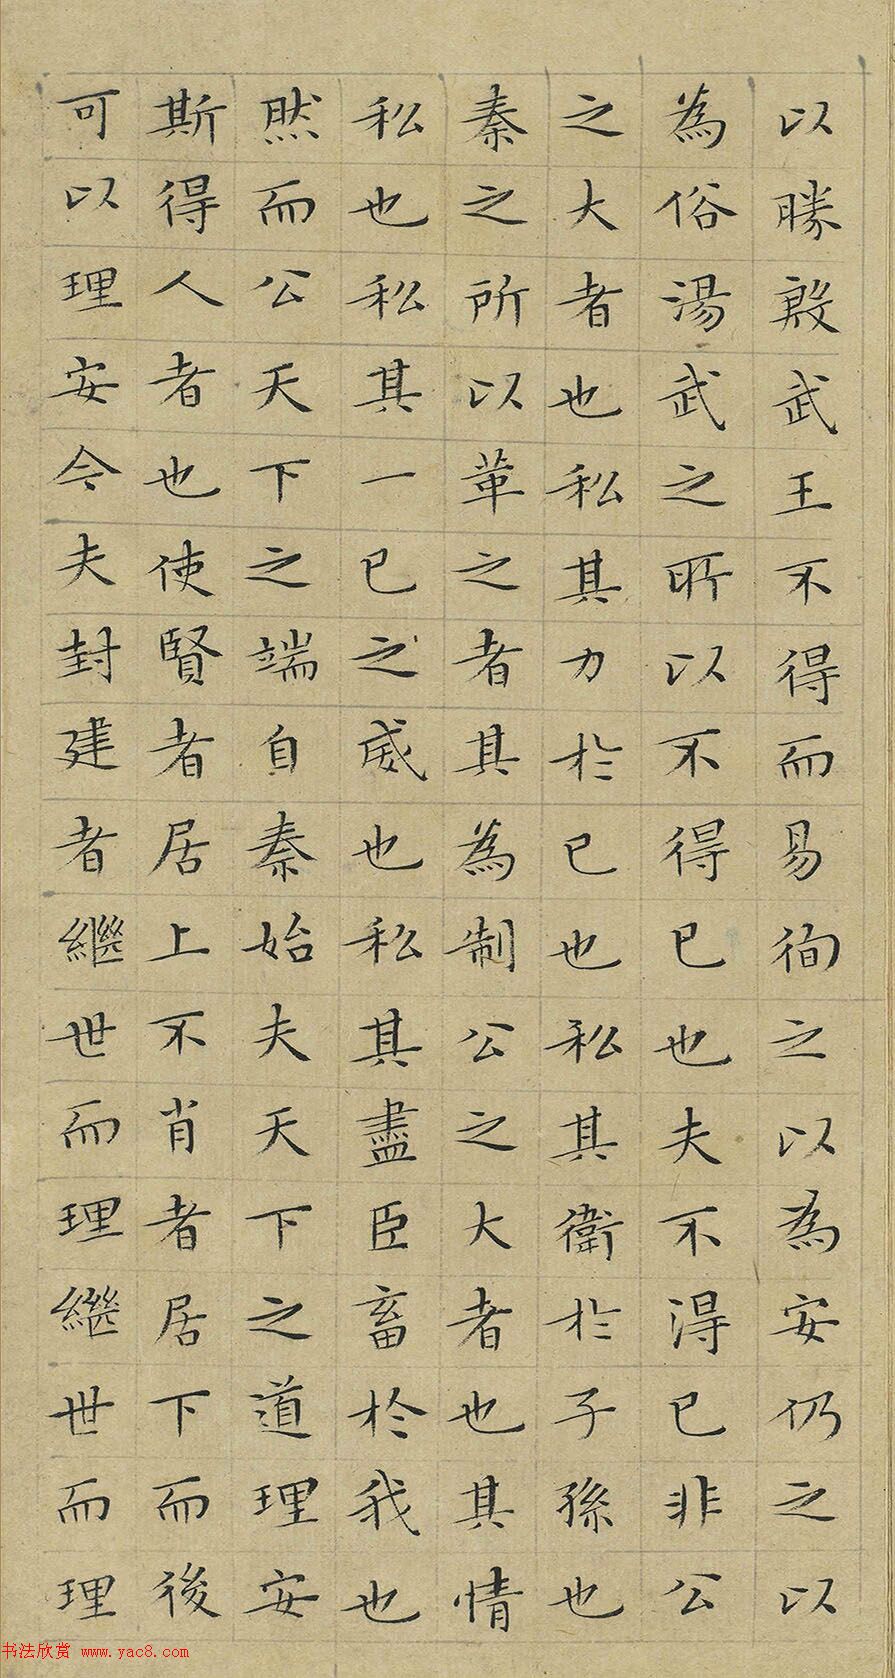 以勝殷武王不得而易徇之以為安仍之以
為俗湯武之所以不得已也夫不得已非公
之大者也私其力於己也私其衛於子孫也
秦之所以革之者其為制公之大者也其情
私也私其一己之威也私其盡臣畜於我也
然而公天下之端自秦始夫天下之道理安
斯得人者也使賢者居上不肖者居下而後
可以理安今夫封建者繼世而理繼世而理
书法欣赏 www.yac8.com